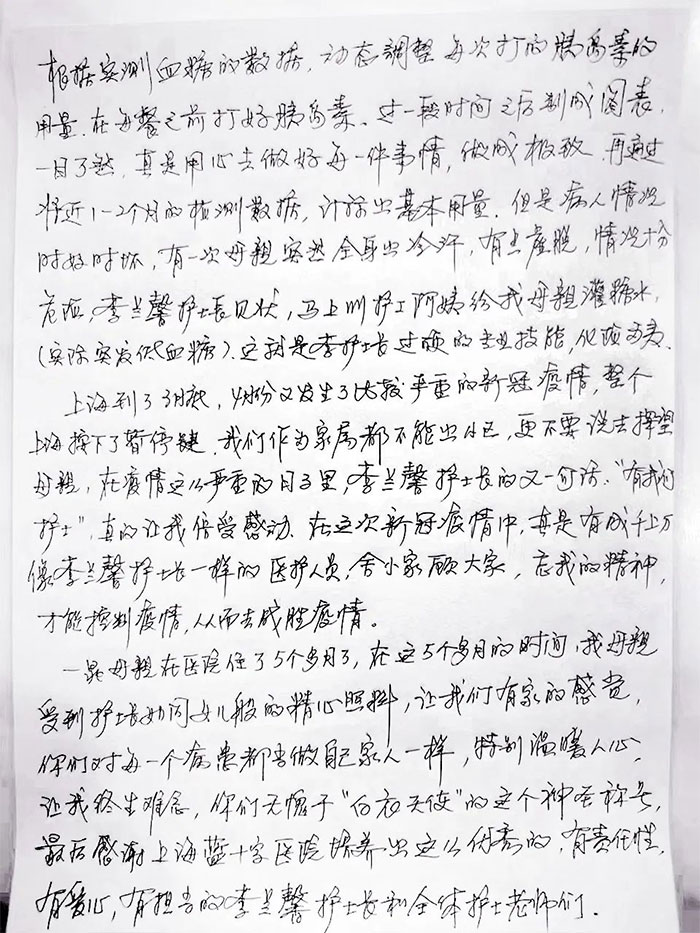 根据实测血糖的数据，动态調整每次打的胰岛素的
用量.在每餐之前打好胰岛素、过一段时间之后制成图表，
一目了然，真是用心去做好每一件事情，做成极致.再通过
将近1-2个月的检测数据，计算出基本用量.但是病人情况
时好时坏，有一次母亲突然全身出冷汗，有点虚脱，情况十分
危险，李兰馨护士長见状，马上叫护工阿姨给我母亲灌糖水，
(实际突发低血糖).这就是李护士长过硬的专业技能，化险为夷.
上海到了3月底，4月份又发生了比较严重的新冠疫情，整个
上海按下了暂停键.我们作为家属都不能出小区，更不要说去探望
母亲，在疫情这么严重的日子里，李兰馨护士長的又一句话."有我们
护士"，真的让我倍受感动.在这次新冠疫情中，真是有成千上万
像李兰馨护士长一样的医护人员，舍小家顾大家，忘我的精神，
才能控制疫情，从而去战胜疫情。
一晃母亲在医院住了5个多月了，在这5个多月的时间，我母亲
受到护士长如同女儿般的精心照料，让我们有家的感觉，
你们对每一个病患都当做自己家人一样，特别温暖人心，
让我终生难忘，你们无愧于"白衣天使"的这个神圣称号，
最后感谢上海蓝十字医院培养出这么优秀的，有责任性，
有爱心，有担当的李兰馨护士長和全体护士老师们.